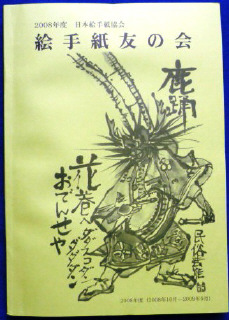 2008年度 日本絵手紙協会
絵手紙友の会
鹿踊
花巻
おでんせや
ダダスコダ
ダダダン
民俗芸能
2008年度(2008年10月~2009年9月)